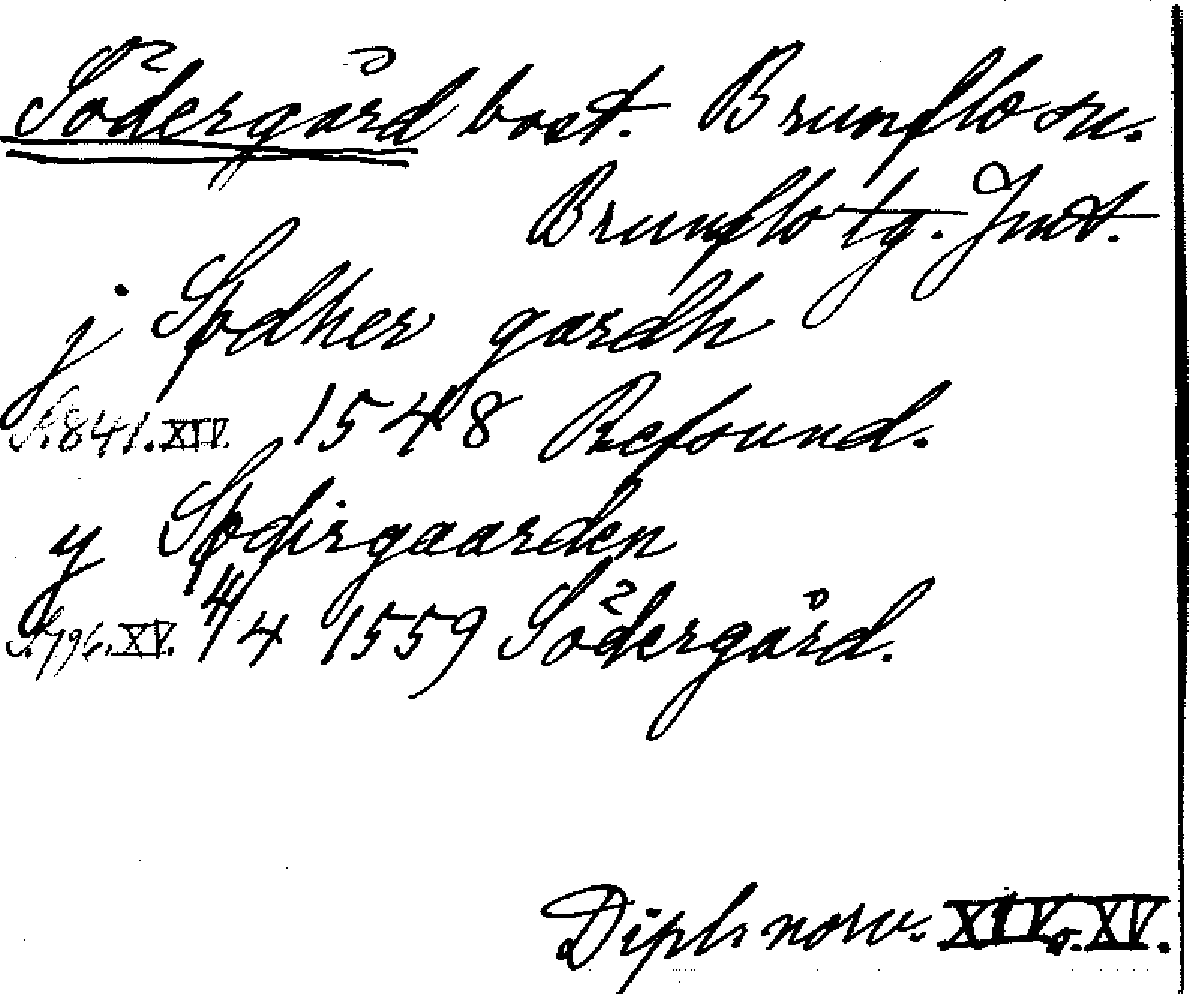 Södergård bost. Brunflo sn.
Brunflo tg. Jmt.
j Sødher gardh
S. 841. XIV. 1548 Refsund.
y Sødirgaarden
S. 796. XV. 4/4 1559 Södergård.
Dipl. norv. XIV o. XV.